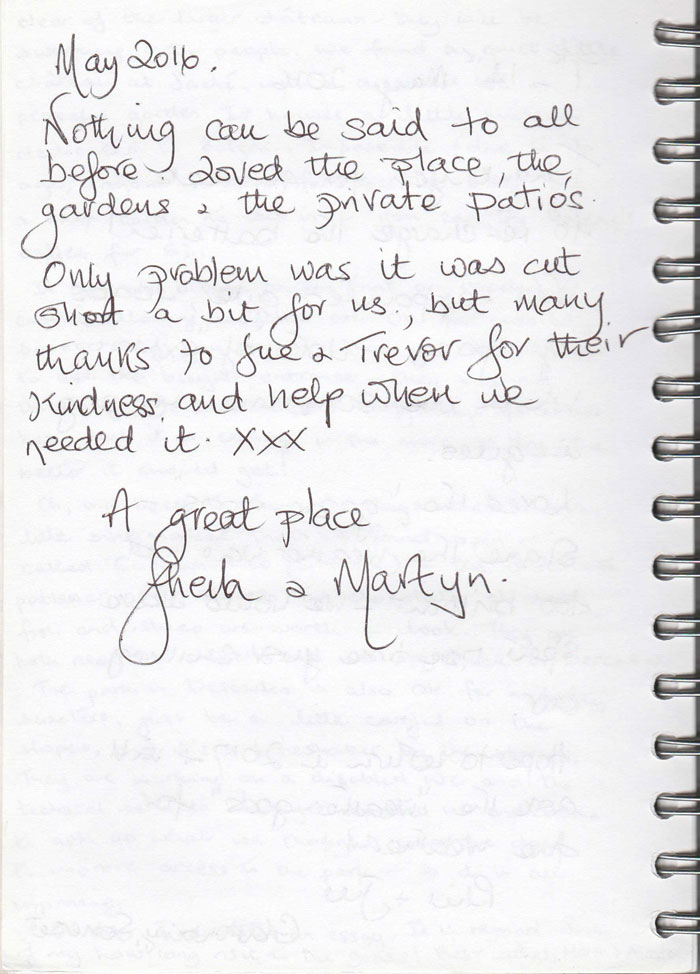 May 2016.
Nothing can be said to all
before. Loved the place, the
gardens & the private patio's.
Only problem was it was cut
short a bit for us, but many
thanks to Sue & Trevor for their
kindness and help when we
needed it. XXX
A great place
Sheila & Martyn.